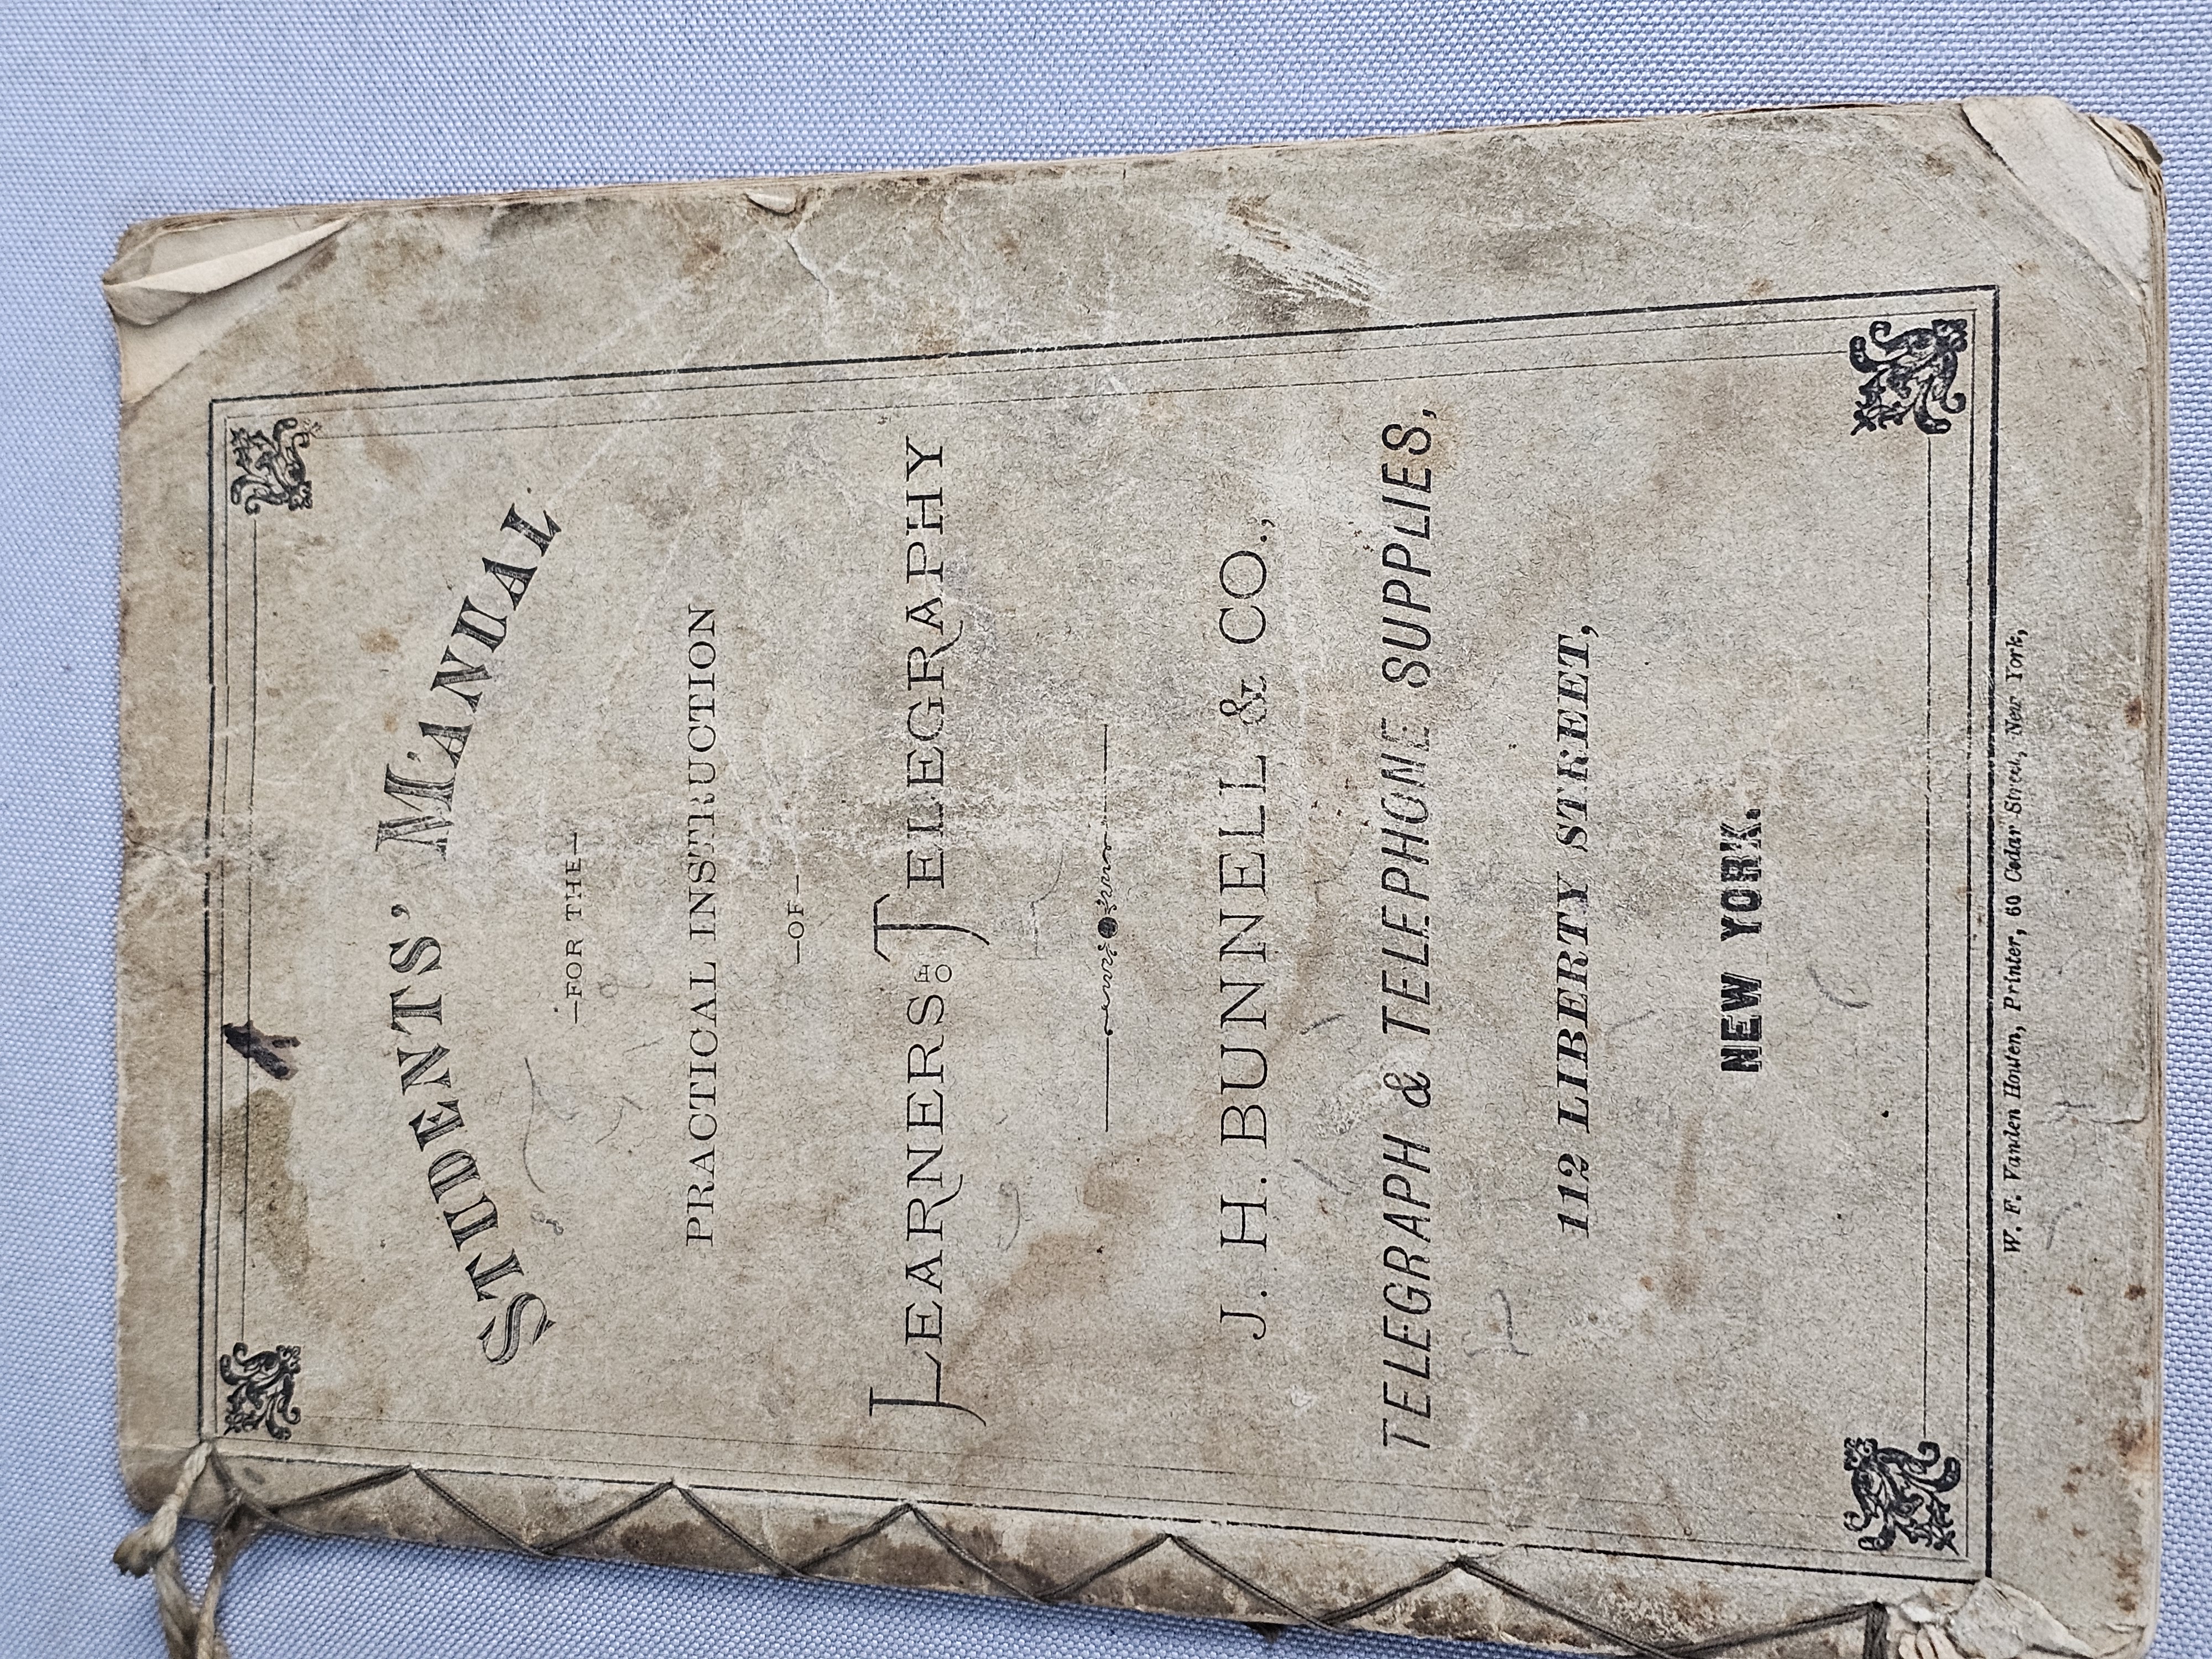 STUDENTS' MANUAL
—FOR THE—
PRACTICAL INSTRUCTION
—OF—
LEARNERS OF TELEGRAPHY
J. H. BUNNELL & CO.,
TELEGRAPH & TELEPHONE SUPPLIES,
112 LIBERTY STREET,
NEW YORK.
W. F. Vanden Houten, Printer, 60 Cedar Street, New York,